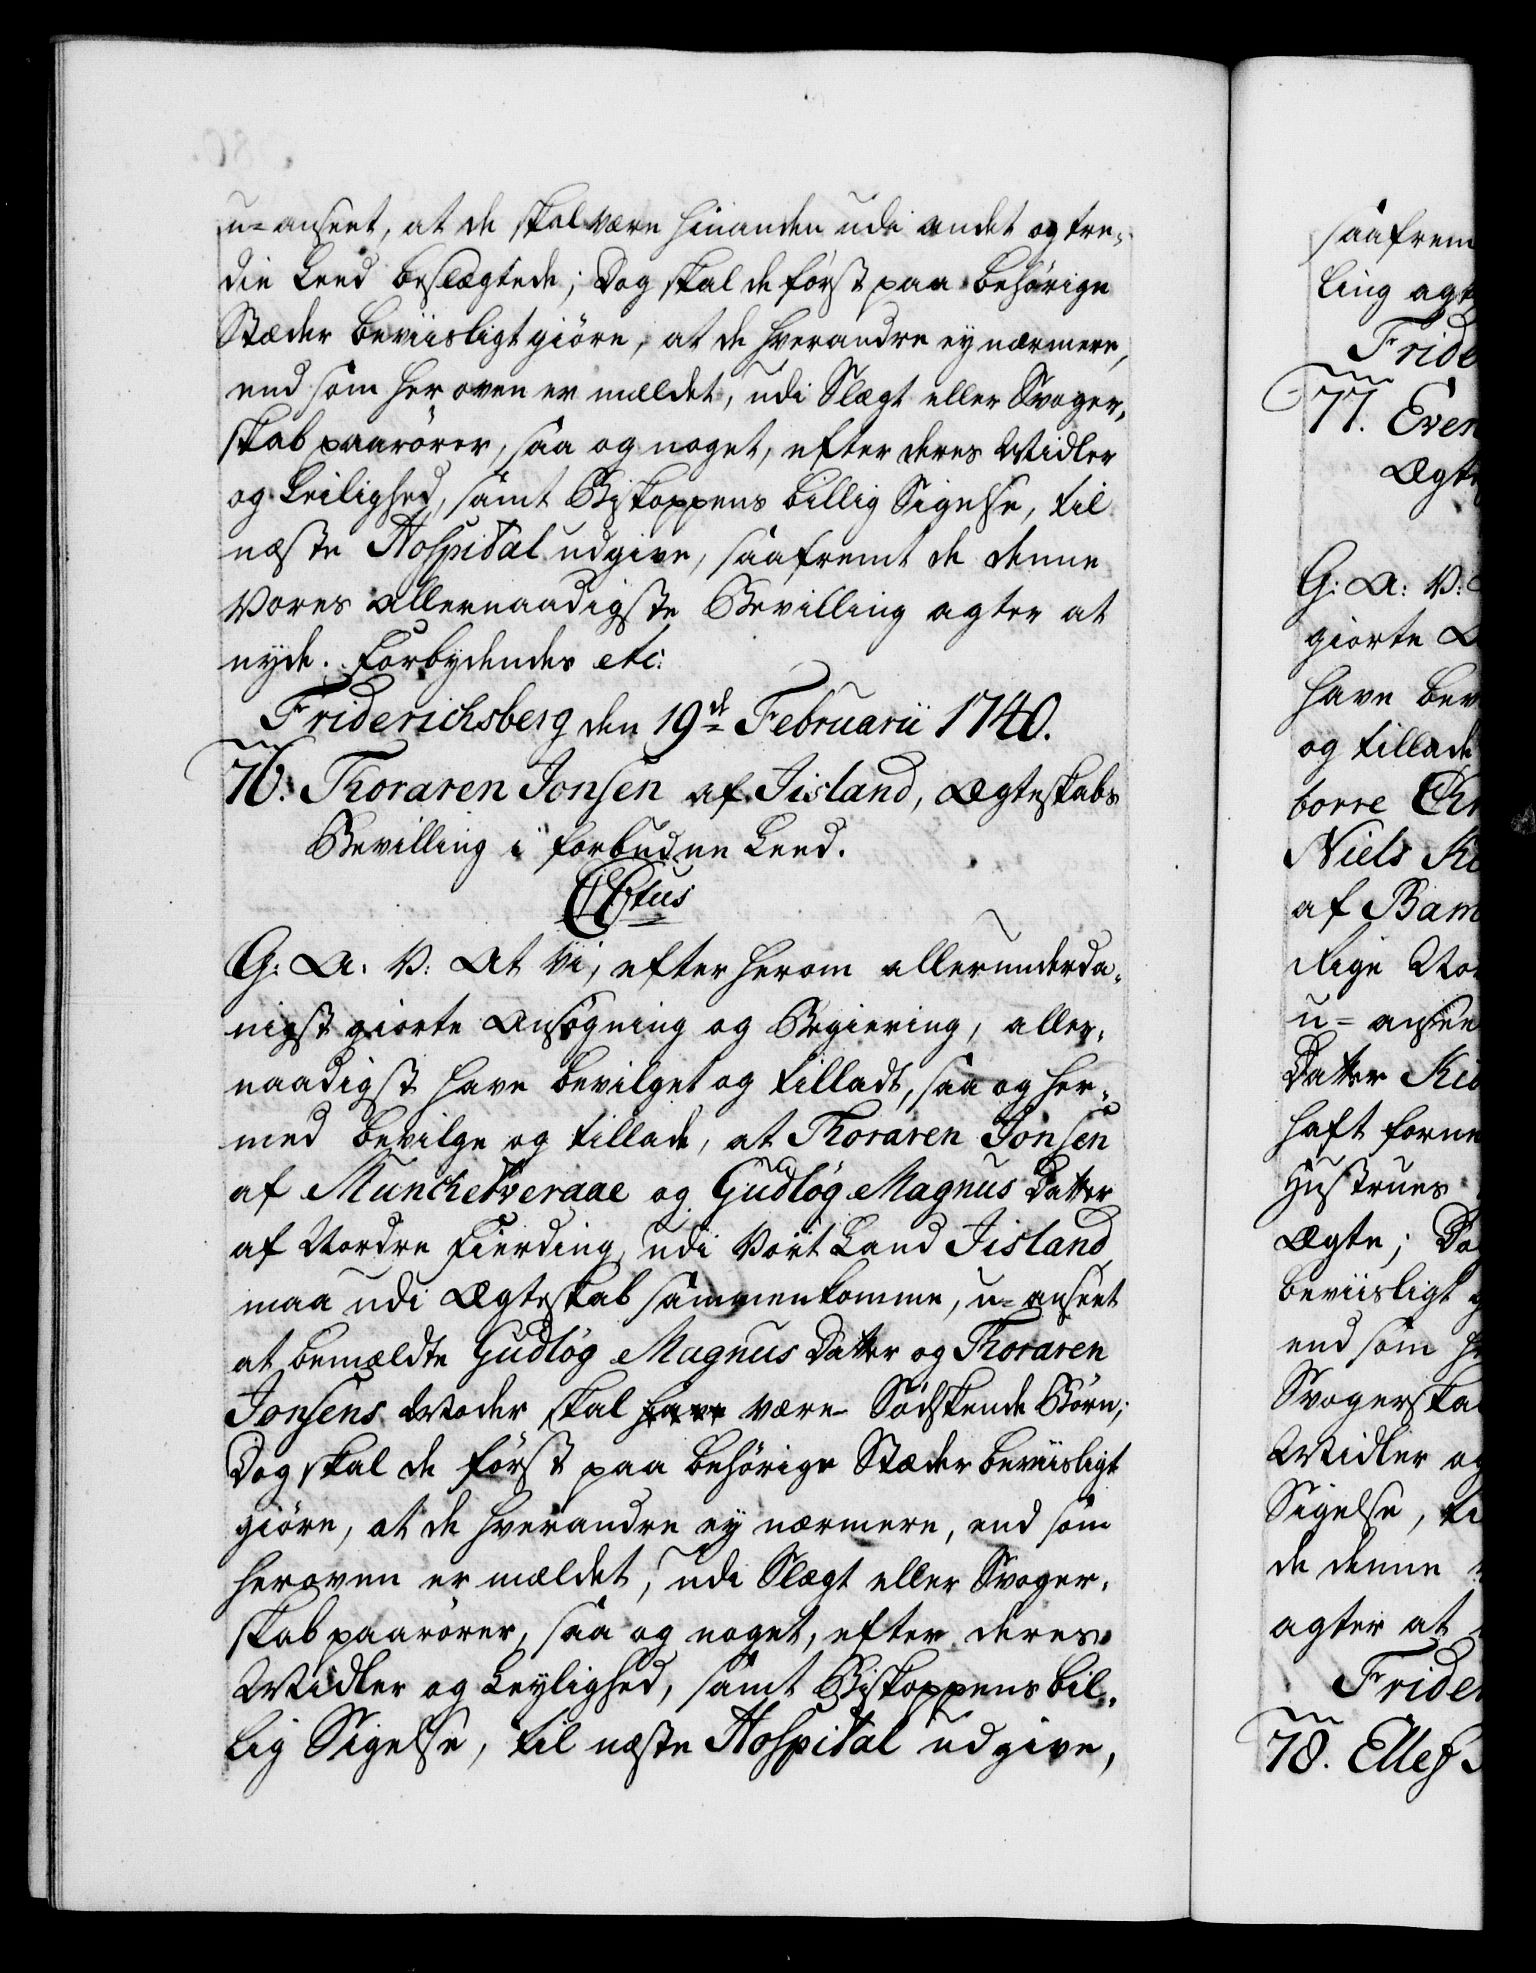 u-anseet, at de skal være hinanden udi andet og tre-
die Leed beslægtede; Dog skal de först paa behörige
Stæder beviisligt giöre, at de hverandre ey nærmere,
end som her oven er mældet, udi Slægt eller Svoger-
skab paarörer, saa og noget, efter deres Midler
og Leilighed, samt Biskoppens billig Sigelse, til
næste Hospital udgive, saafremt de denne
Vores allernaadigste Bevilling agter at
nyde. Forbydendes etc:
Friderichsberg den 19de Februarii 1740.
76. Thoraren Jonsen af Iisland, Ægteskabs
Bevilling i forbudne Leed.
C6tus
G: A: V: At Vi, efter herom allerunderda-
nigst giorte Ansögning og Begiering, aller-
naadigst have bevilget og tilladt, saa og her-
med bevilge og tillade, at Thoraren Jonsen
af Munchetveraae og Gudlög Magnus Datter
af Nordre Fierding udi Vort Land Iisland
maa udi Ægteskab sammenkomme, u-anseet
at bemældte Gudlög Magnus Datter og Thoraren
Jonsens Moder skal have være Södskende Börn;
Dog skal de först paa behörige Stæder beviisligt
giöre, at de hverandre ey nærmere, end som
heroven er mældet, udi Slægt eller Svoger-
skab paarörer, saa og noget, efter deres
Midler og Leylighed, samt Biskoppens bil-
lig Sigelse, til næste Hospital udgive,
saafrem
ling agt
Fride
77. Even
Ægt
G: A: V:
giorte
have bev
og tillade
borre
Niels
af Bam
u-ansee
Datter
haft forne
Hustrues
Ægte; Do
beviisligt
end som
Svogerska
Midler og
Sigelse, ti
de denne
agter at
Frider
78. Ellef